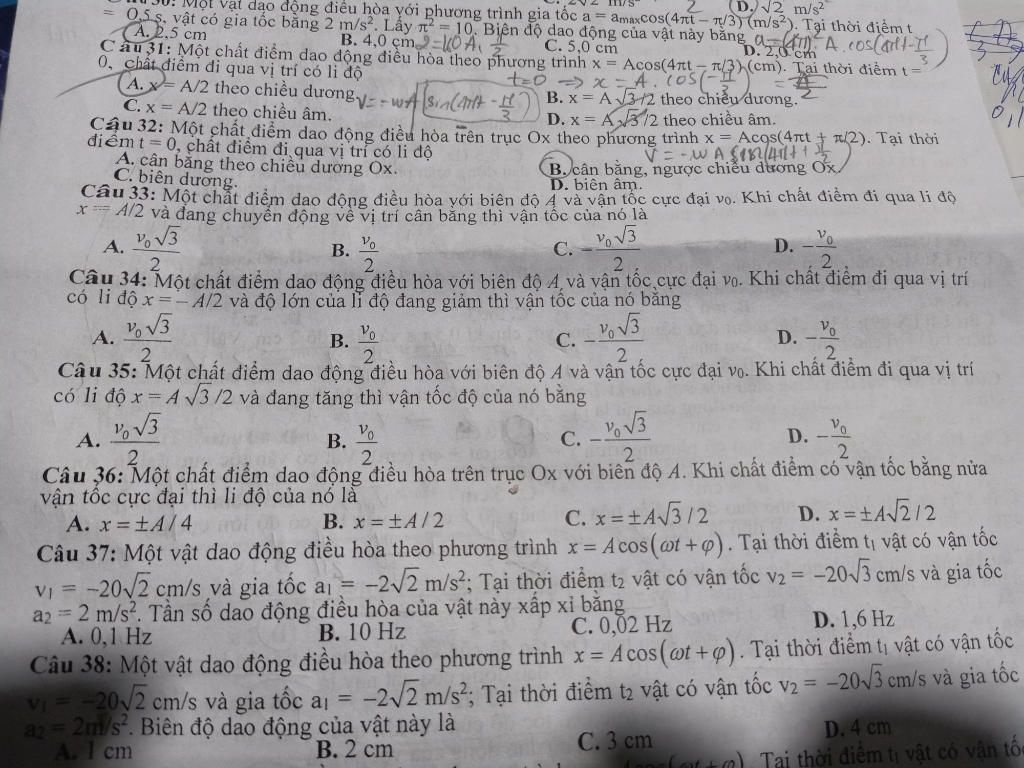 Một vật dao động điều hòa với phương trình gia tốc a = amaxcos(4πt − π/3) (m/s²). Tại thời điểm t
= 0,5 s, vật có gia tốc bằng 2 m/s². Lấy π² = 10. Biên độ dao động của vật này bằng
A. 2,5 cm B. 4,0 cm C. 5,0 cm D. 2,0 cm
Câu 31: Một chất điểm dao động điều hòa theo phương trình x = Acos(4πt − π/3) (cm). Tại thời điểm t =
0, chất điểm đi qua vị trí có li độ
t=0 => x = A. cos(-π/3) = A/2
A. x = A/2 theo chiều dương. B. x = A√3/2 theo chiều dương.
v = -wA sin(4πt - π/3)
C. x = A/2 theo chiều âm. D. x = A√3/2 theo chiều âm.
Câu 32: Một chất điểm dao động điều hòa trên trục Ox theo phương trình x = Acos(4πt + π/2). Tại thời
điểm t = 0, chất điểm đi qua vị trí có li độ
v = -wA sin(4πt + π/2)
A. cân bằng theo chiều dương Ox. B. cân bằng, ngược chiều dương Ox.
C. biên dương. D. biên âm.
Câu 33: Một chất điểm dao động điều hòa với biên độ A và vận tốc cực đại v₀. Khi chất điểm đi qua li độ
x = A/2 và đang chuyển động về vị trí cân bằng thì vận tốc của nó là
A. v₀√3/2 B. v₀/2 C. −v₀√3/2 D. −v₀/2
Câu 34: Một chất điểm dao động điều hòa với biên độ A và vận tốc cực đại v₀. Khi chất điểm đi qua vị trí
có li độ x = − A/2 và độ lớn của li độ đang giảm thì vận tốc của nó bằng
A. v₀√3/2 B. v₀/2 C. −v₀√3/2 D. −v₀/2
Câu 35: Một chất điểm dao động điều hòa với biên độ A và vận tốc cực đại v₀. Khi chất điểm đi qua vị trí
có li độ x = A√3/2 và đang tăng thì vận tốc độ của nó bằng
A. v₀√3/2 B. v₀/2 C. −v₀√3/2 D. −v₀/2
Câu 36: Một chất điểm dao động điều hòa trên trục Ox với biên độ A. Khi chất điểm có vận tốc bằng nửa
vận tốc cực đại thì li độ của nó là
A. x = ±A/4 B. x = ±A/2 C. x = ±A√3/2 D. x = ±A√2/2
Câu 37: Một vật dao động điều hòa theo phương trình x = Acos(ωt + φ). Tại thời điểm t₁ vật có vận tốc
v₁ = −20√2 cm/s và gia tốc a₁ = −2√2 m/s²; Tại thời điểm t₂ vật có vận tốc v₂ = −20√3 cm/s và gia tốc
a₂ = 2 m/s². Tần số dao động điều hòa của vật này xấp xỉ bằng
A. 0,1 Hz B. 10 Hz C. 0,02 Hz D. 1,6 Hz
Câu 38: Một vật dao động điều hòa theo phương trình x = Acos(ωt + φ). Tại thời điểm t₁ vật có vận tốc
v₁ = −20√2 cm/s và gia tốc a₁ = −2√2 m/s²; Tại thời điểm t₂ vật có vận tốc v₂ = −20√3 cm/s và gia tốc
a₂ = 2m/s². Biên độ dao động của vật này là
A. 1 cm B. 2 cm C. 3 cm D. 4 cm
Tại thời điểm t₁ vật có vận tốc